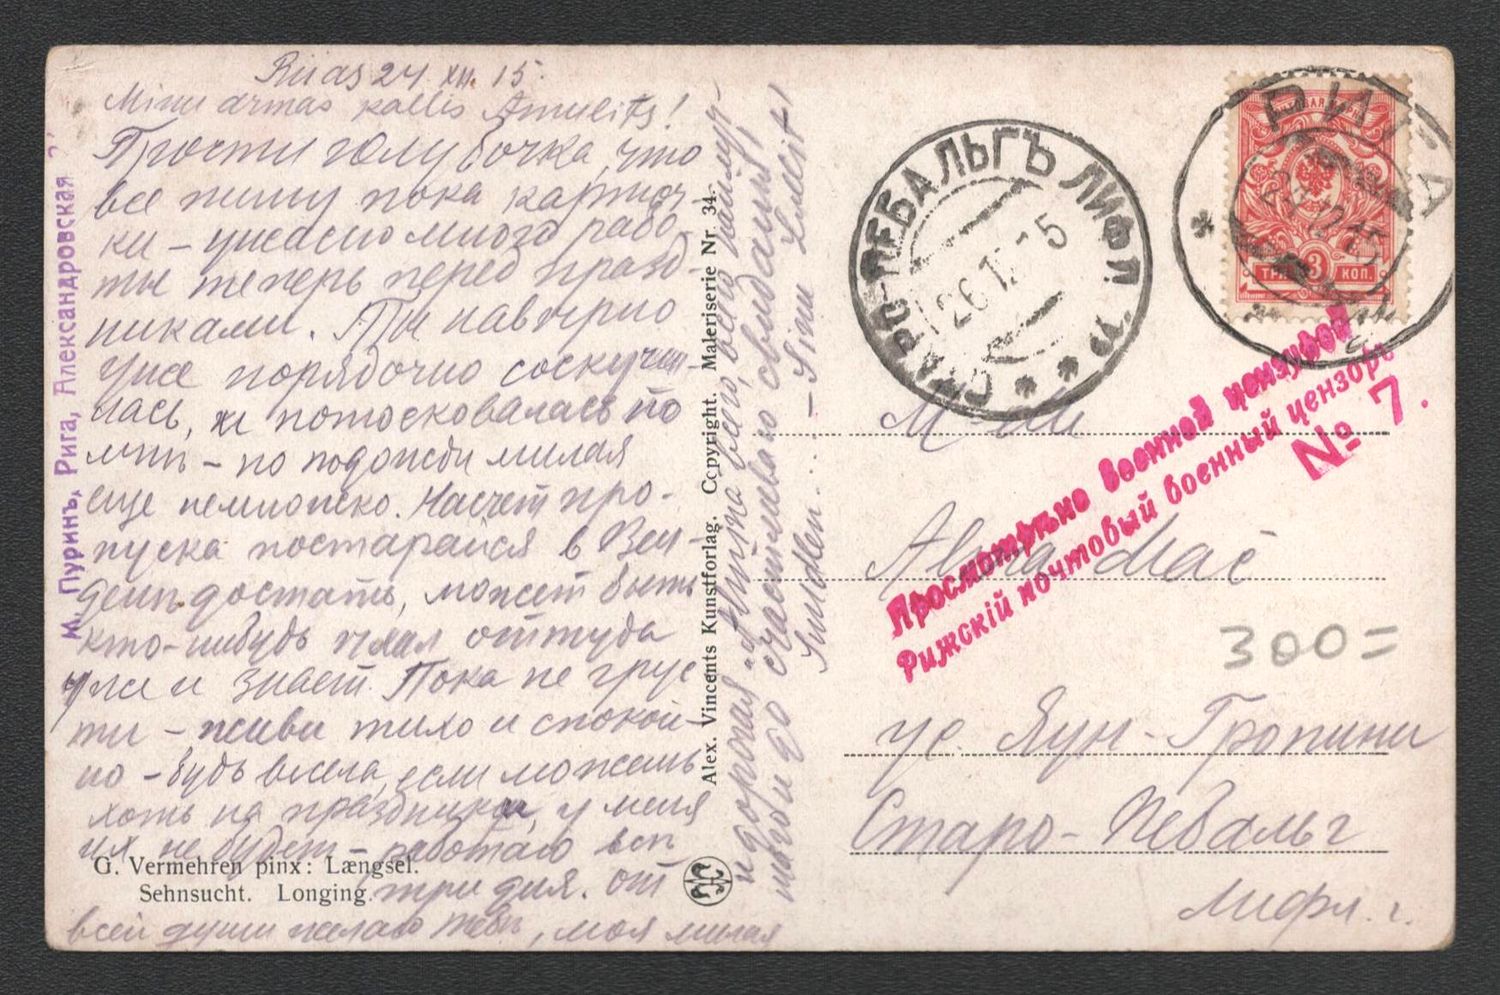 24 XII. 15.
Minu armas kallis
Прости голубочка, что
все пишу пока карточ-
ки – ужасно много рабо-
ты теперь перед празд-
никами. Ты наверно
уже порядочно соскучи-
лась, и потосковалась по
мнѣ – но подожди милая
еще немножко. Насчет про-
пуска постарайся в Вен-
дене достать, может быть
кто-нибудь оттуда
и знает. Пока не грус
ти – живи тихо и спокой-
но – будь весела, если можешь
хоть на праздники, у меня
их не будет – работаю всѣ
три дня. От
всей души желаю тебѣ, моя милая
и дорогая
много и до счастливаго свиданья!
– Sinu
М. Пуринъ, Рига, Александровская
G. Vermehren pinx: Længsel.
Sehnsucht. Longing.
Alex. Vincents Kunstforlag. Copyright. Maleriserie Nr. 34.
СТАРО-ПЕБАЛЬГЪ ЛИФЛ. Г.
26 12 15
РИГА
24 12 15
ТРИ 3 КОП.
Просмотрѣно военной цензурой
Рижскій почтовый военный цензоръ
№ 7.
M-lle
Alma
ус. Яун-Гропини
Старо-Пебальг
Лифл. г.
300=